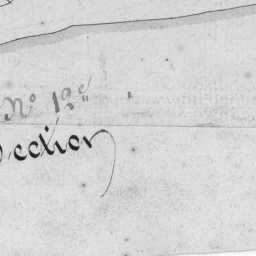 N.º 1.
Section